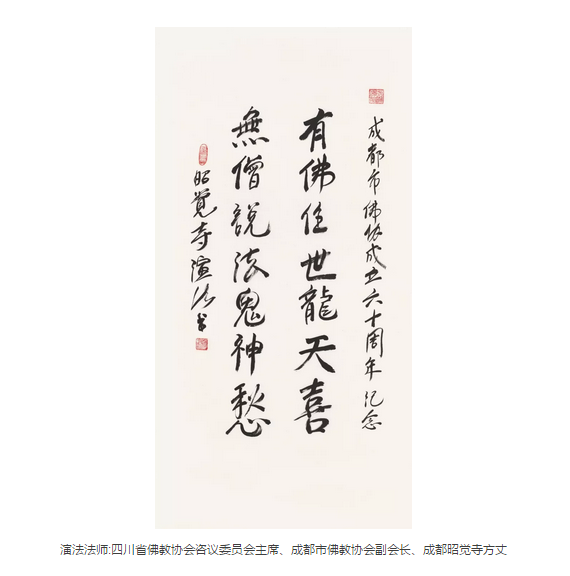 成都市佛协成立六十周年纪念
有佛住世龍天喜
無僧說法鬼神愁
昭覺寺演法书
演法法师:四川省佛教协会咨议委员会主席、成都市佛教协会副会长、成都昭觉寺方丈